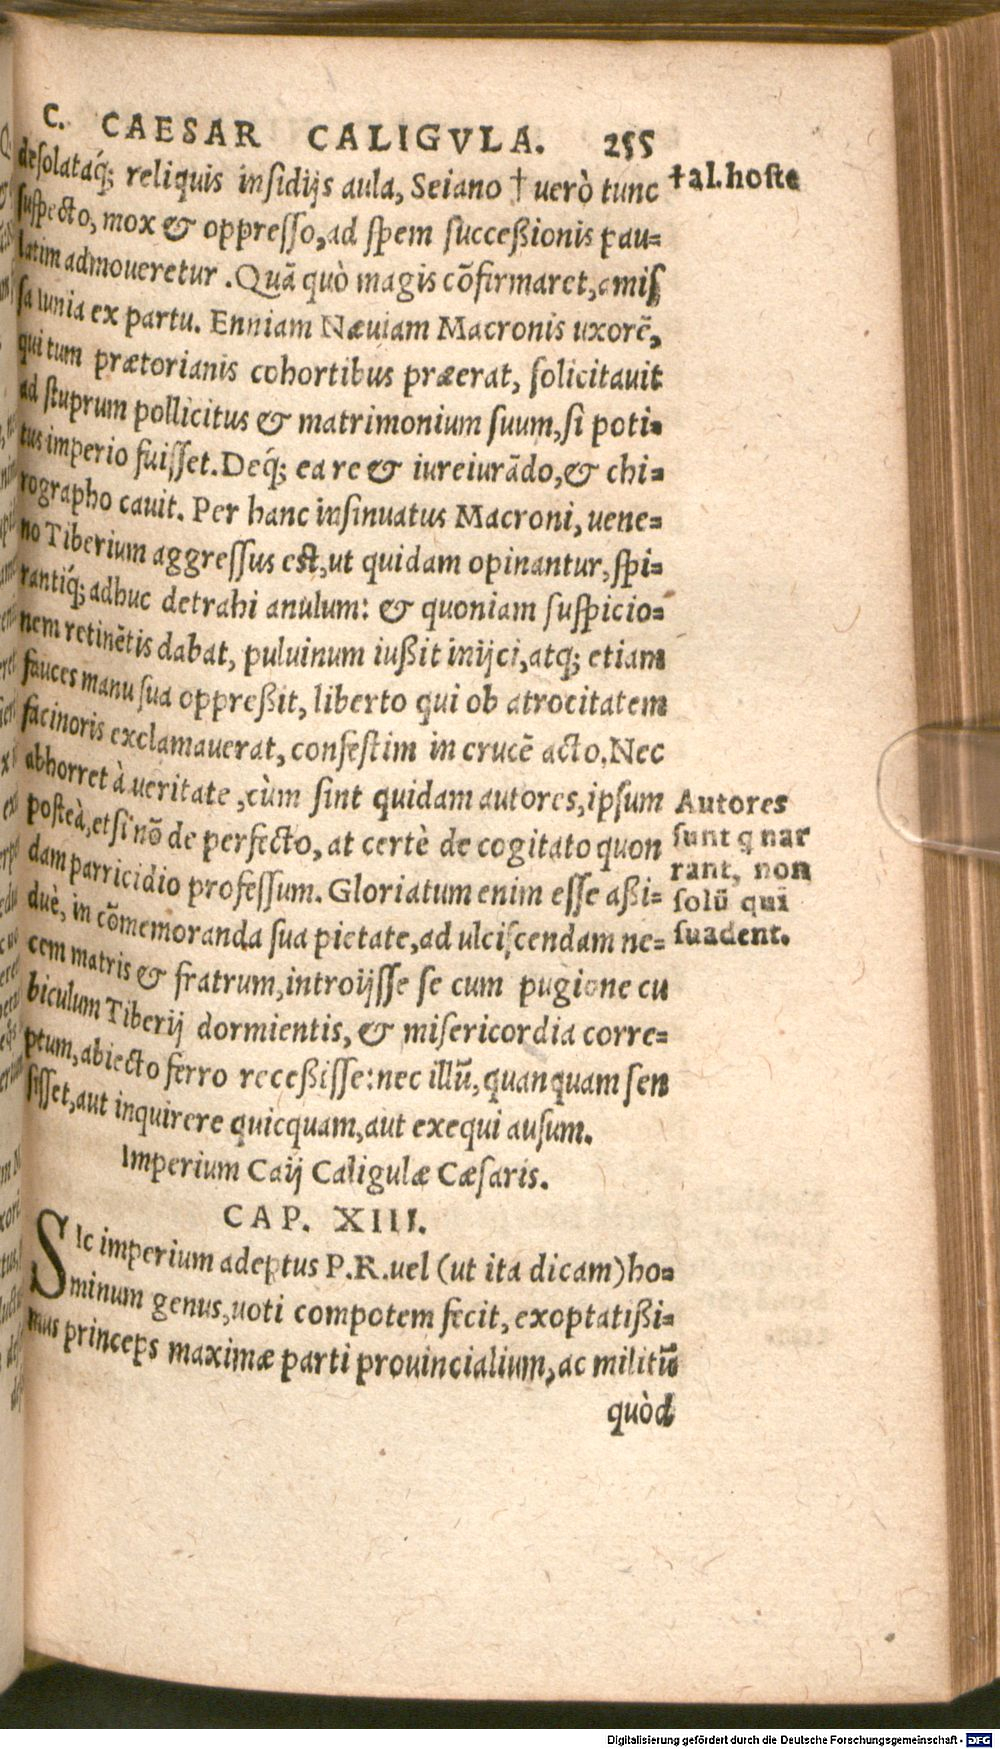 C. CAESAR CALIGVLA. 255
desolataq́; reliquis insidijs aula, Seiano † uerò tunc
†al.hoste
suspecto, mox & oppresso, ad spem successionis pau-
latim admoueretur. Quā quò magis cōfirmaret, amis
sa Iunia ex partu. Enniam Næuiam Macronis uxorē,
qui tum prætorianis cohortibus præerat, solicitauit
ad stuprum pollicitus & matrimonium suum, si poti-
tus imperio fuisset. Deq́; ea re & iureiurādo, & chi-
rographo cauit. Per hanc insinuatus Macroni, uene-
no Tiberium aggressus est, ut quidam opinantur, spi-
rantiq́; adhuc detrahi anulum: & quoniam suspicio-
nem retinētis dabat, puluinum iußit inijci, atq; etiam
fauces manu sua oppreßit, liberto qui ob atrocitatem
facinoris exclamauerat, confestim in crucē acto. Nec
abhorret à ueritate, cùm sint quidam autores, ipsum
posteà, etsi nō de perfecto, at certè de cogitato quon
dam parricidio professum. Gloriatum enim esse aßi-
duè, in cōmemoranda sua pietate, ad ulciscendam ne-
cem matris & fratrum, introijsse se cum pugione cu
biculum Tiberij dormientis, & misericordia corre-
ptum, abiecto ferro receßisse: nec illū, quanquam sen
sisset, aut inquirere quicquam, aut exequi ausum.
Autores
sunt q nar
rant, non
solū qui
suadent.
Imperium Caij Caligulæ Cæsaris.
CAP. XIII.
SIc imperium adeptus P.R. uel (ut ita dicam) ho-
minum genus, uoti compotem fecit, exoptatißi-
mus princeps maximæ parti prouincialium, ac militū
quòd
Digitalisierung gefördert durch die Deutsche Forschungsgemeinschaft - DFG